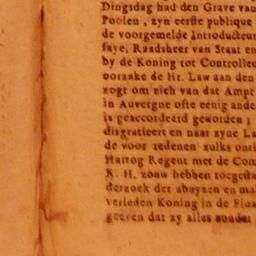 Dingsdag had den Grave van
Poolen, zyn eerste publique
de voorgemelde Introducteur
faye, Raadsheer van Staat en
by de Koning tot Controlleu
oorzake de Hr. Law aan den
zogt om zich van dat Ampt
in Auvergne ofte eenig ande
is geaccordeerd geworden;
disgratieert en naar zyne La
de voor redenen zulks ontl
Hartog Regent met de Com
K. H. zouw hebben toegesta
derzoek der abuyzen en ma
verleden Koning in de Fina
geeven dat zy alles zonder